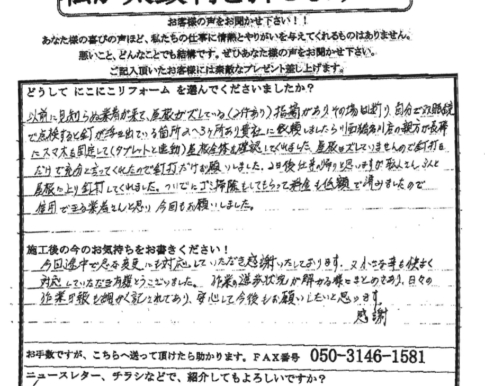 お客様の声をお聞かせ下さい！！
あなた様の喜びの声ほど、私たちの仕事に情熱とやりがいを与えてくれるものはありません。
悪いこと、どんなことでも結構です。ぜひあなた様の声をお聞かせ下さい。
ご記入頂いたお客様には素敵なプレゼント差し上げます。
どうして にこにこリフォーム を選んでくださいましたか？
以前に見知らぬ業者が来て、屋根がズレている(2件あり)指摘があり その場は断り 自分で双眼鏡
で点検すると釘が浮き出ている箇所が2〜3ヶ所あり貴社に依頼しましたら
にスマホを固定して(タブレットと連動)屋根全体を確認してくれました。屋根はズレていませんので釘打ち
だけで充分と言ってくれたので釘打だけお願いしました。2日後仕事の帰りと思いますが
屋根に上り釘打してくれました。ついでにゴミ掃除もしてもらって料金も低額で済みましたので
信用できる業者さんと思い 今回もお願いしました。
施工後の今のお気持ちをお書きください！
今回途中で色々変更にも対応していただき感謝いたしております。又小さな事も快よく
対応していただき有難とうございました。作業の進歩状況が解かる様にまとめてあり、日々の
作業日報も細かく記されてあり、安心して今後もお願いしたいと思います。
感謝
お手数ですが、こちらへ送って頂けたら助かります。ＦＡＸ番号 050-3146-1581
ニュースレター、チラシなどで、紹介してもよろしいですか？